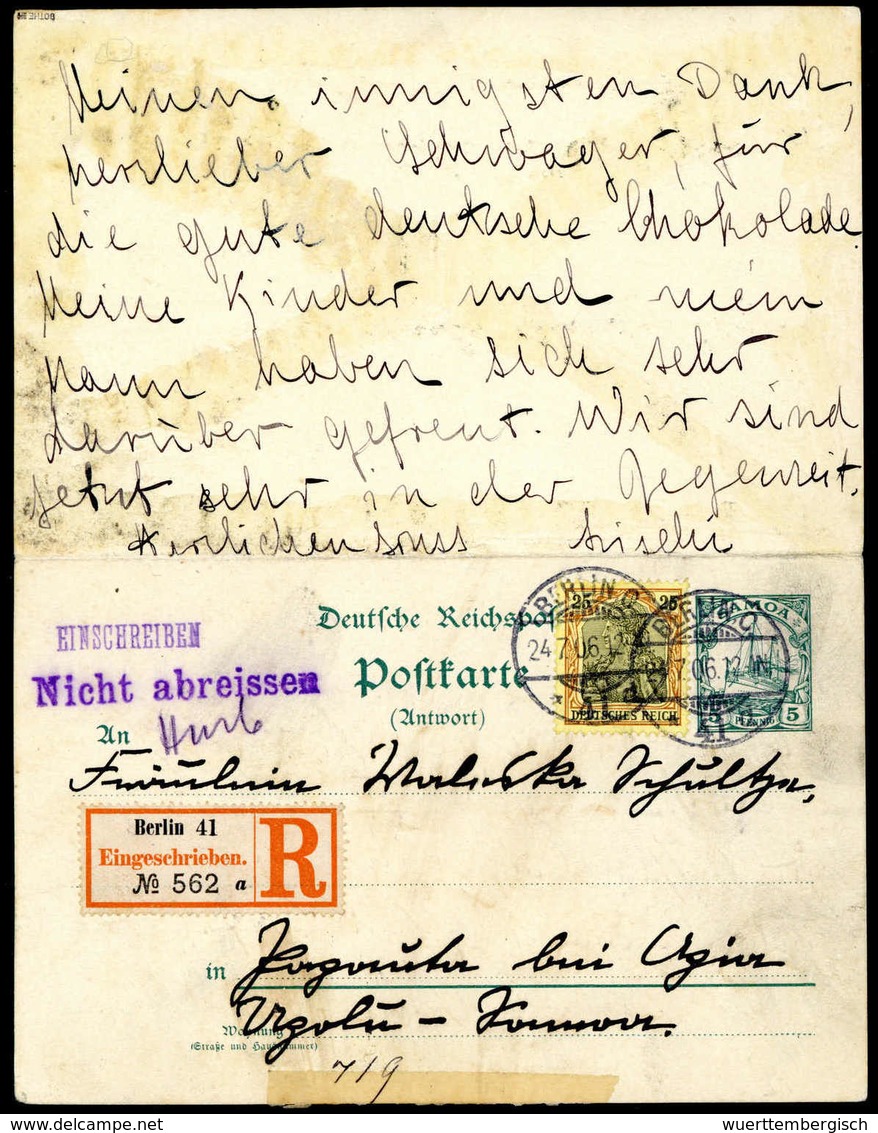 Meinen innigsten Dank,
herzlieber Schwager, für
die gute deutsche Chokolade.
Meine Kinder und mein
Mann haben sich sehr
darüber gefreut. Wir sind
jetzt sehr in der Gegenzeit.
Herzlichen Gruss
BERLIN C
24.7.06.12
41
25 25
DEUTSCHES REICH
BERLIN C
7.06.12-1N.
41
SAMOA
5 PFENNIG 5
EINSCHREIBEN
Deutsche Reichspost
Nicht abreissen
Postkarte
(Antwort)
An
Fräulein Waleska Schultze,
Berlin 41
Eingeschrieben.
№ 562 a
R
in
bei Apia
Upolu – Samoa.
Wohnung
(Straße und Hausnummer)
719
delcampe.net
wuerttembergisch